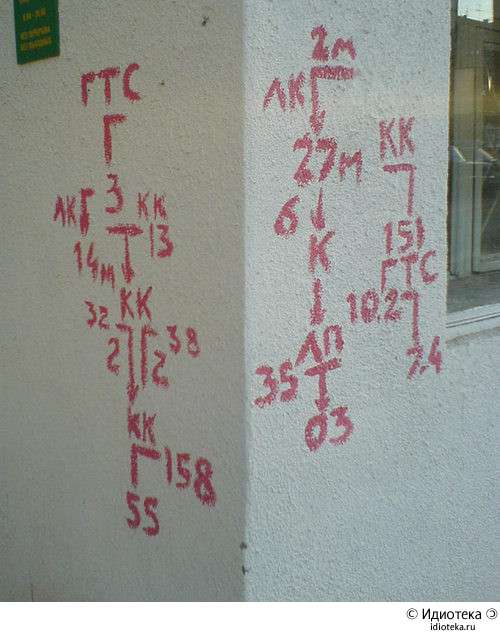 ГТС
Г
3
ЛК Г КК
Т 13
14м
КК
32 38
2 2
КК
Г 158
55
2м
ЛК Г
27м
6
К
ЛП
35 Т
03
КК
151
ГТС
10.2
7.4
© Идиотека
idioteka.ru